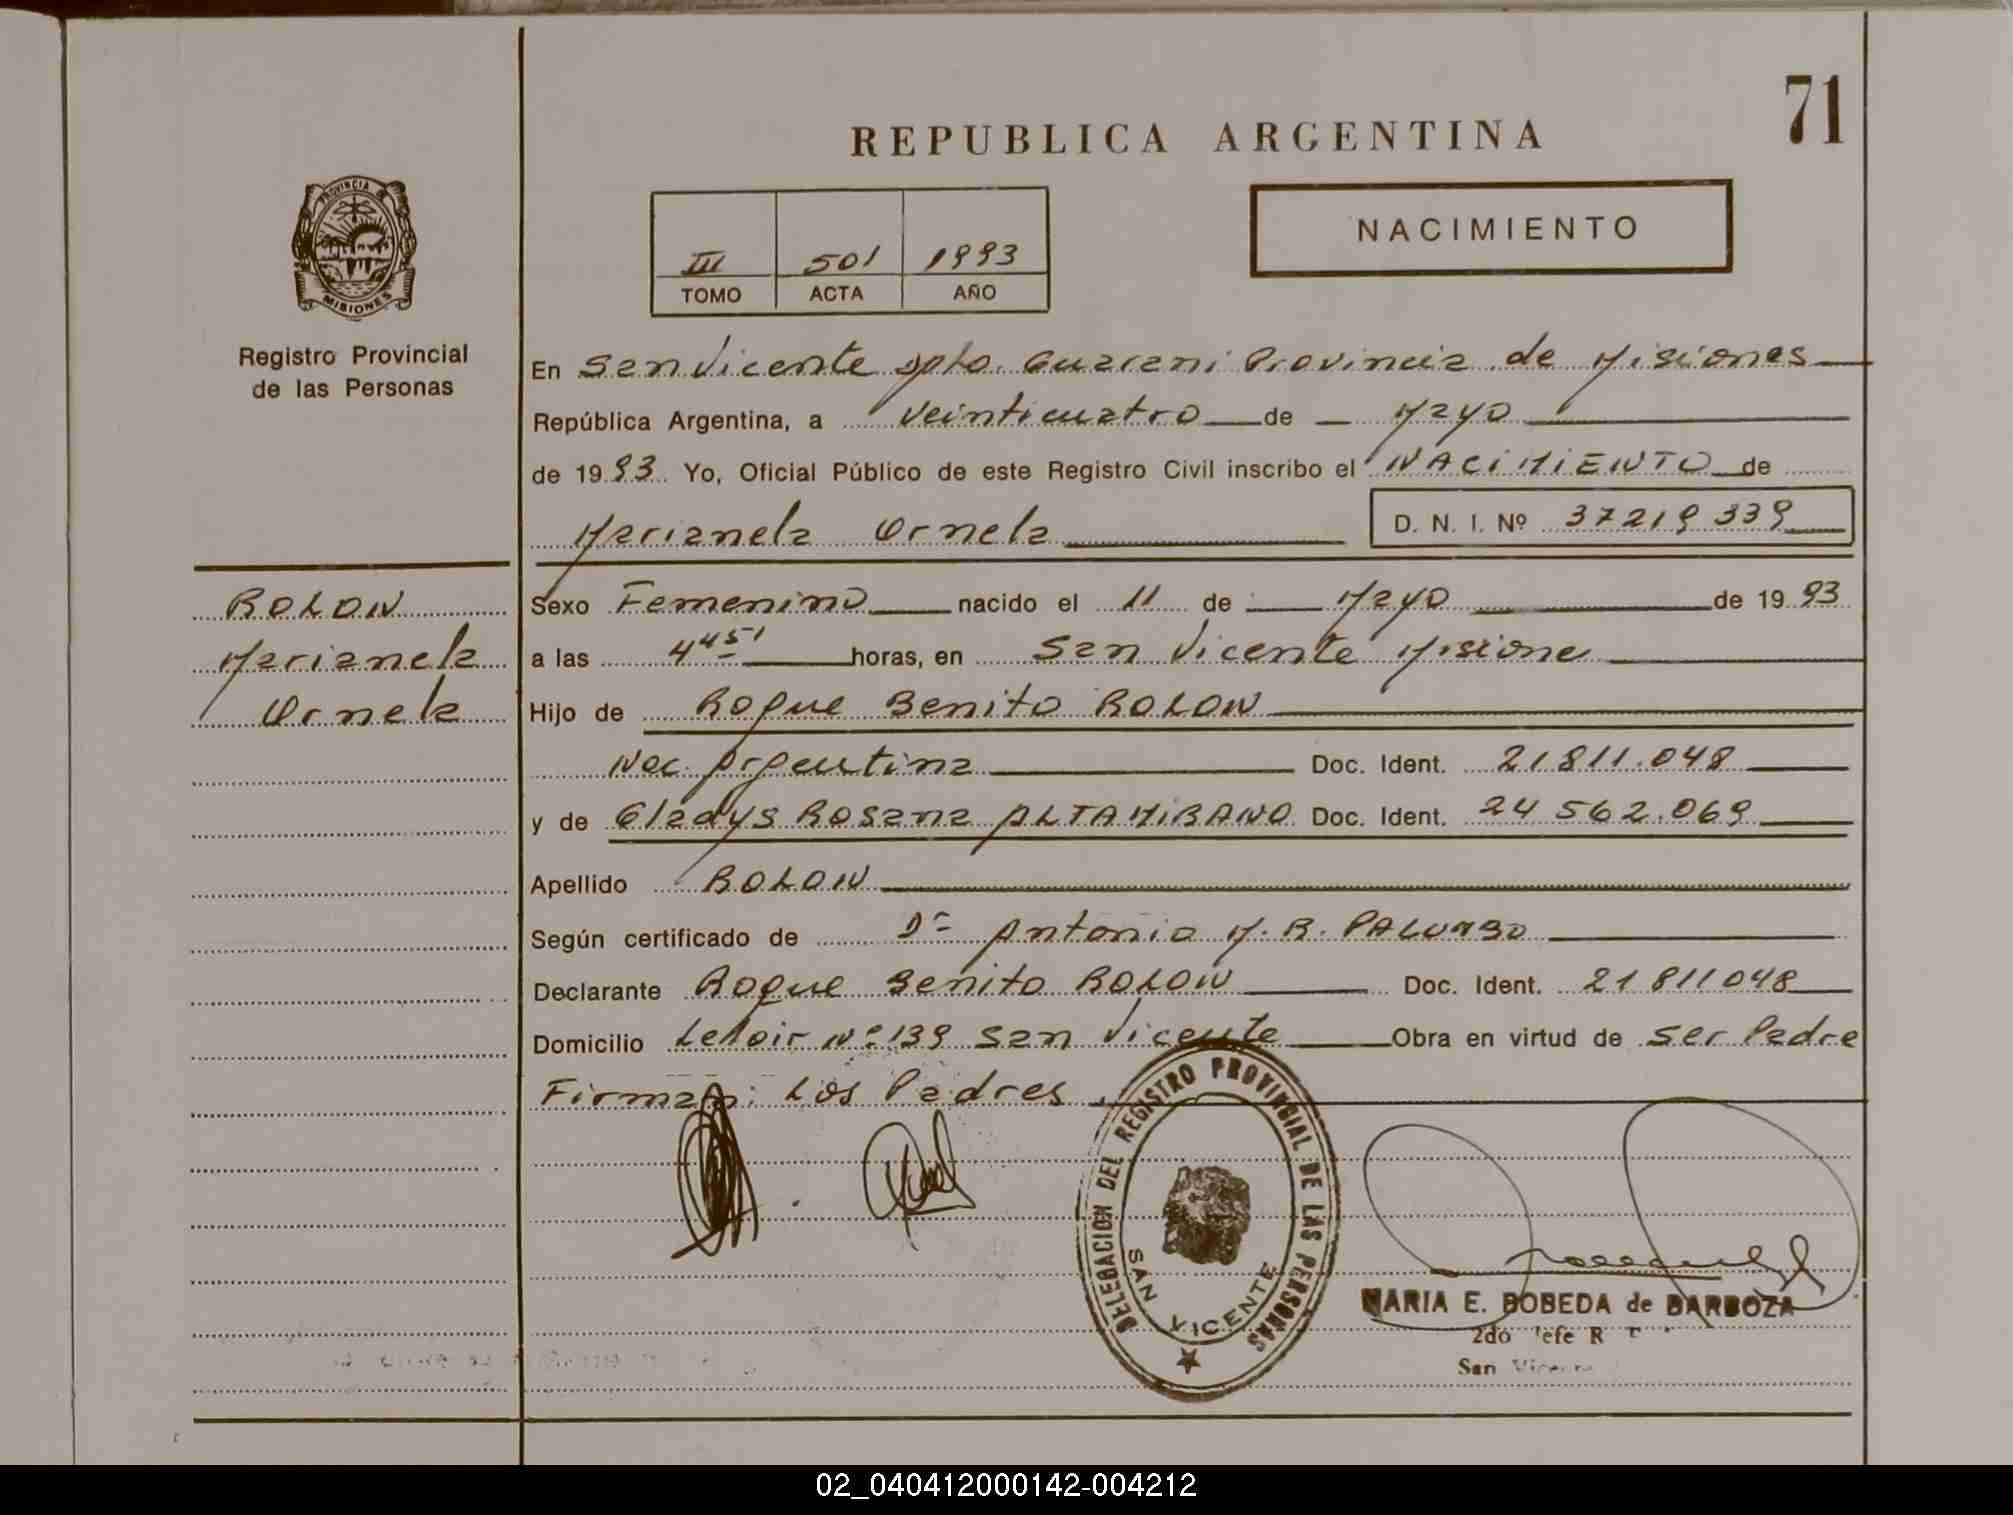 71
REPUBLICA ARGENTINA
PROVINCIA
MISIONES
Registro Provincial
de las Personas
III 501 1993
TOMO ACTA AÑO
NACIMIENTO
En San Vicente Dpto. Guarani Provincia de Misiones
República Argentina, a veinticuatro de Mayo
de 1993 Yo, Oficial Público de este Registro Civil inscribo el NACIMIENTO de
Marianela Ornela D. N. I. Nº 37219339
ROLON
Marianela
Ornela
Sexo Femenino nacido el 11 de Mayo de 1993
a las 4 45' horas, en San Vicente Misione
Hijo de Roque Benito ROLON
Nac. Argentina Doc. Ident. 21811.048
y de Gladys Rosana ALTAMIRANO Doc. Ident. 24 562.069
Apellido ROLON
Según certificado de Dr Antonio M. R. PALUMBO
Declarante Roque Benito ROLON Doc. Ident. 21811048
Domicilio Leloir Nº 139 San Vicente Obra en virtud de Ser Padre
Firman: Los Padres
DELEGACION DEL REGISTRO PROVINCIAL DE LAS PERSONAS
SAN VICENTE
MARIA E. BOBEDA de BARBOZA
2do Jefe R
San Vicente
02_040412000142-004212